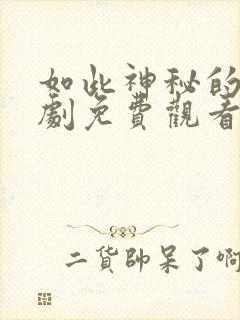 如此神秘的
劇免費觀看
二貨帥呆了啊